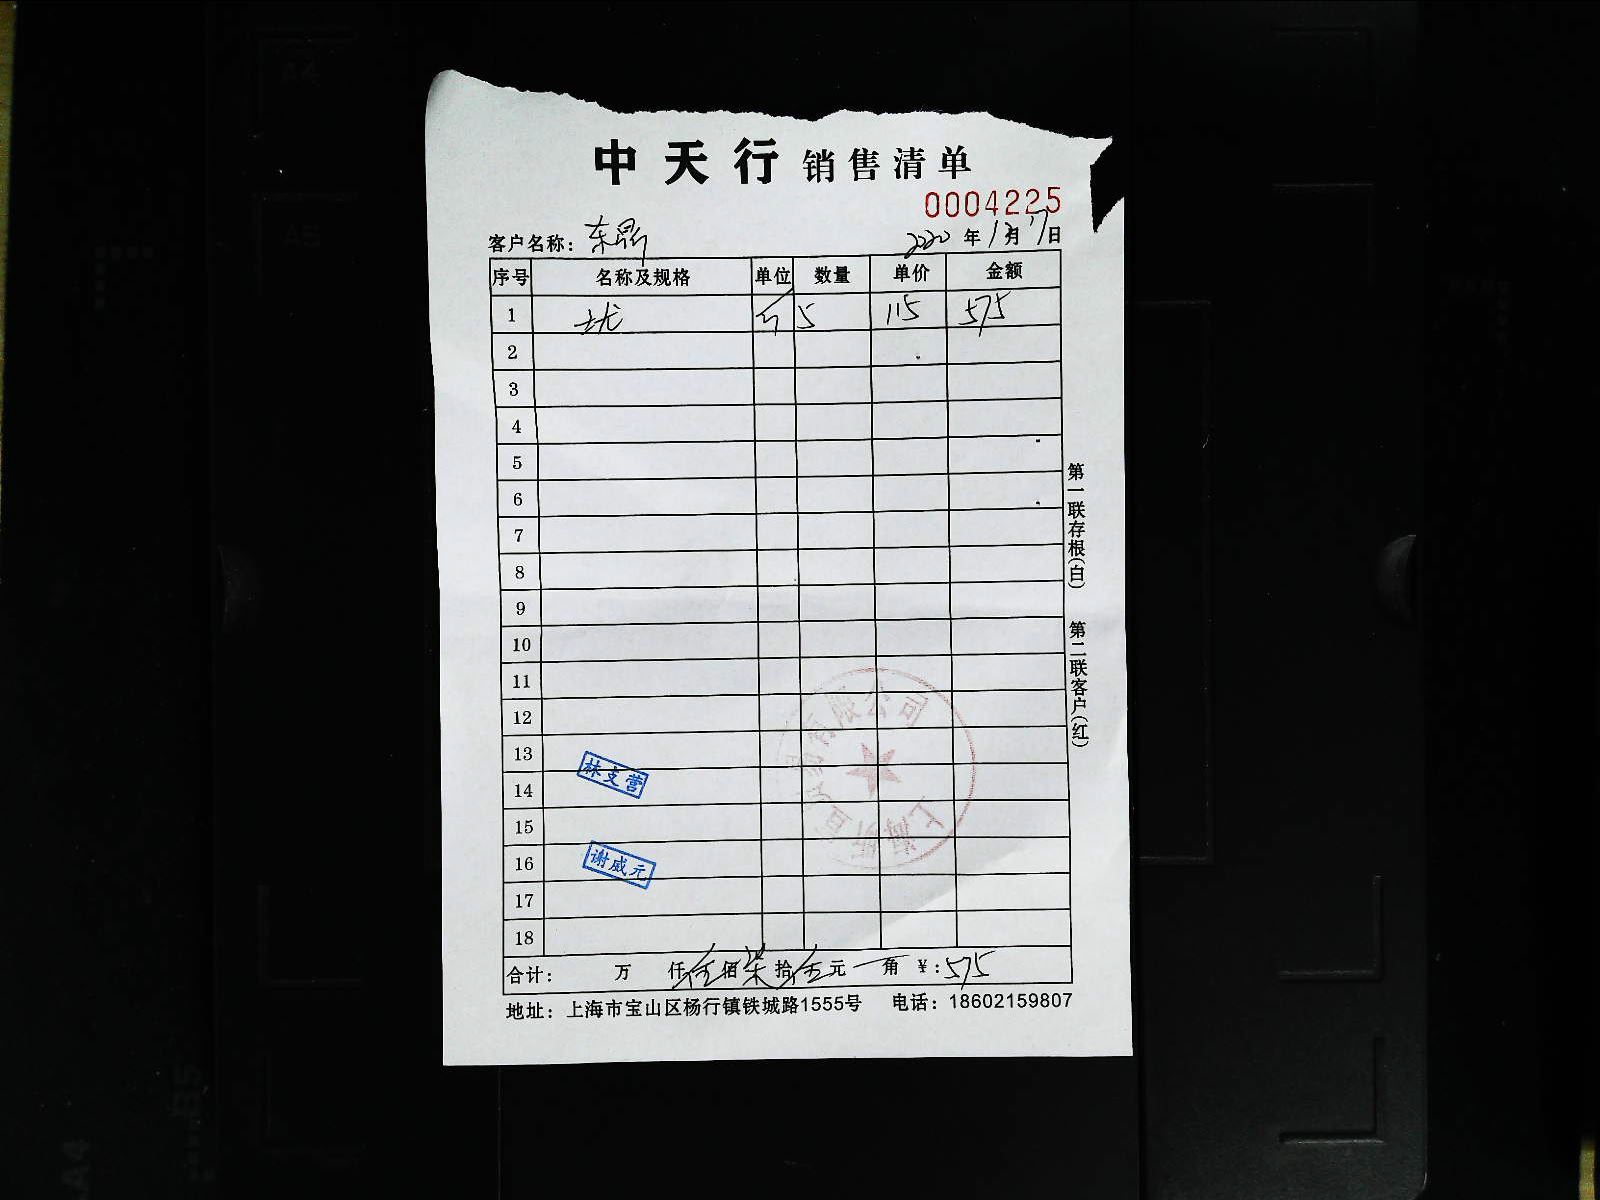 中天行 销售清单
0004225
客户名称: 东晶 2020年12月17日
序号 名称及规格 单位 数量 单价 金额
1 5 115 575
2
3
4
5
6
7
8
9
10
11
12
13
14
15
16
17
18
林支营
谢威元
有限公司
上海
合计: 万 仟伍佰柒拾伍元 角 ¥:575
地址: 上海市宝山区杨行镇铁城路1555号 电话: 18602159807
第一联存根(白) 第二联客户(红)
A4
A5
B5
A4